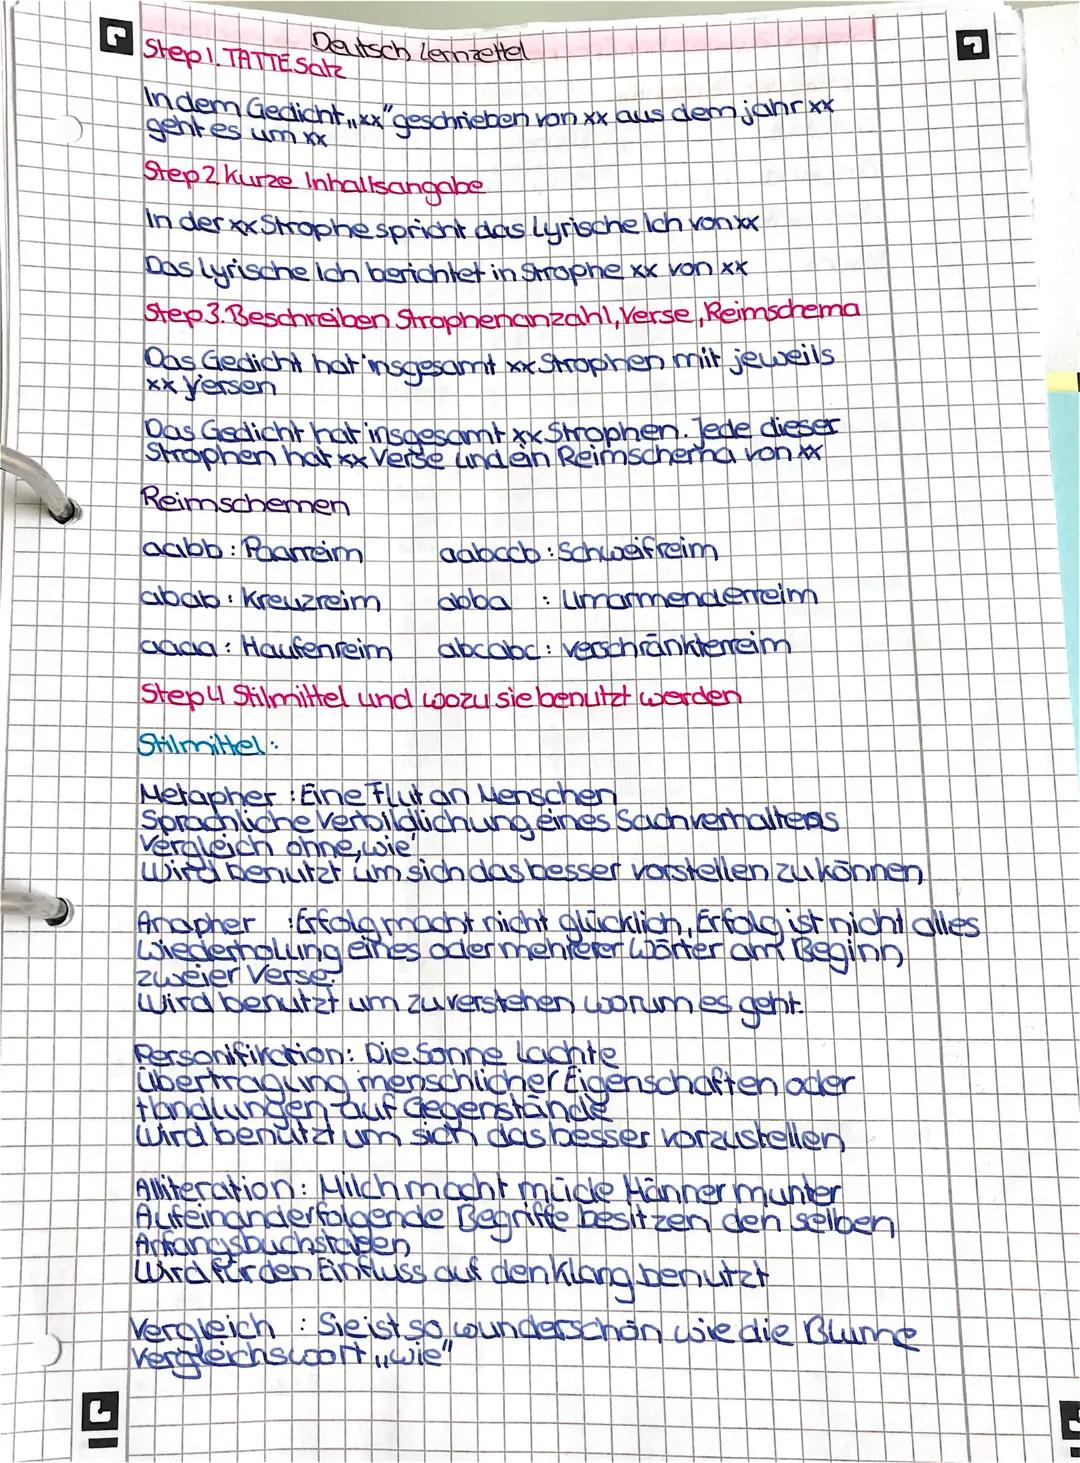 Deutsch Lernzettel
Step 1. TATTE Satz
In dem Gedicht „xx" geschrieben von xx aus dem jahr xx
geht es um xx
Step 2 kurze Inhaltsangabe
In der xx Strophe spricht das Lyrische Ich von xx
Das lyrische Ich berichtet in Strophe xx von xx
Step 3. Beschreiben Strophenanzahl, Verse, Reimschema
Das Gedicht hat insgesamt xx Strophen mit jeweils
xx Versen
Das Gedicht hat insgesamt xx Strophen. Jede dieser
Strophen hat xx Verse und ein Reimschema von xx
Reimschemen
aabb : Paarreim aabccb : Schweifreim
abab : Kreuzreim abba : Umarmenderreim
aaaa : Haufenreim abcabc : verschränkterreim
Step 4 Stilmittel und wozu sie benutzt werden
Stilmittel :
Metapher : Eine Flut an Menschen
Sprachliche Verbildlichung eines Sachverhaltens
Vergleich ohne „wie"
Wird benutzt um sich das besser vorstellen zu können
Anapher : Erfolg macht nicht glücklich, Erfolg ist nicht alles
Wiederholung eines oder mehrerer Wörter am Beginn
zweier Verse.
Wird benutzt um zu verstehen worum es geht.
Personifikation : Die Sonne lachte
Übertragung menschlicher Eigenschaften oder
Handlungen auf Gegenstände
Wird benutzt um sich das besser vorzustellen
Alliteration : Milch macht müde Männer munter
Aufeinanderfolgende Begriffe besitzen den selben
Anfangsbuchstaben
Wird für den Einfluss auf den Klang benutzt
Vergleich : Sie ist so wunderschön wie die Blume
Vergleichswort „wie"